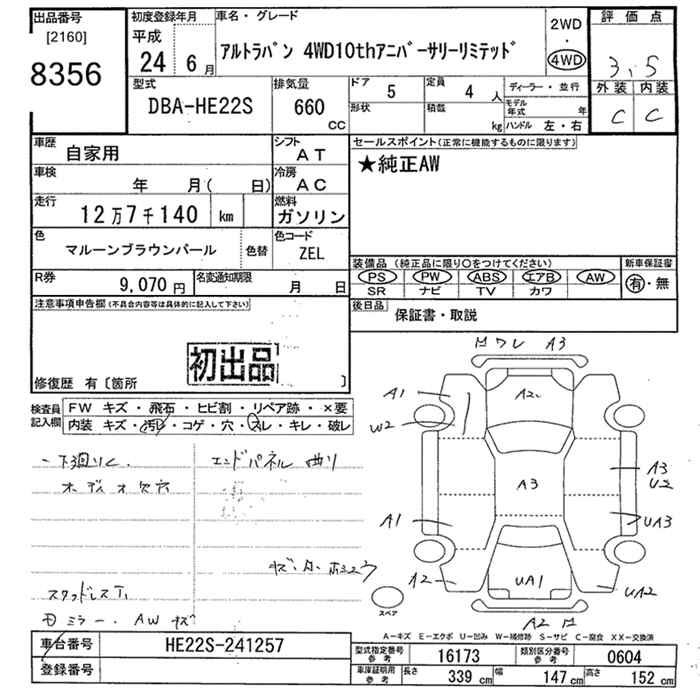 出品番号
[2160]
8356
初度登録年月
平成
24 6月
車名・グレード
アルトラパン 4WD10thアニバーサリーリミテッド
2WD
・
4WD
評価点
3.5
外装 内装
C C
型式
DBA-HE22S
排気量
660
CC
ドア
5
定員
4人
形状
積載
kg
ディーラー・並行
モデル年式 年
ハンドル 左・右
車歴
自家用
シフト
AT
車検
年 月( 日)
冷房
AC
走行
12万7千140 km
燃料
ガソリン
色
マルーンブラウンパール
色替
色コード
ZEL
R券
9,070円
名変通知期限
月 日
セールスポイント(正常に機能するものに限ります)
★純正AW
装備品(純正品に限り○をつけてください)
PS PW ABS エアB AW
SR ナビ TV カワ
新車保証書
有・無
後日品
保証書・取説
注意事項申告欄(不具合内容等は具体的に記入して下さい)
初出品
修復歴 有〔箇所 〕
検査員記入欄
FW キズ・飛石・ヒビ割・リペア跡・×要
内装 キズ・汚レ・コゲ・穴・スレ・キレ・破レ
下廻りC
エンドパネル 曲り
スタッドレス
ミラー・AWキズ
A3
A1
A2
W2
A3
A3
U2
A1
UA3
A2
UA1
UA2
スペア
A2
A-キズ E-エクボ U-凹み W-補修跡 S-サビ C-腐食 XX-交換済
車台番号
HE22S-241257
登録番号
型式指定番号
参考
16173
類別区分番号
参考
0604
車庫証明用
参考
長さ 339cm 幅 147cm 高さ 152cm